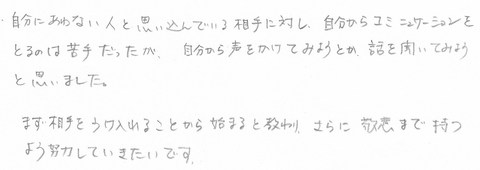 ・自分にあわない人と思い込んでいる相手に対し、自分からコミュニュケーションを
とるのは苦手だったが、自分から声をかけてみようとか、話を聞いてみよう
と思いました。
まず相手をうけ入れることから始まると教わり、さらに敬意まで持つ
よう努力していきたいです。